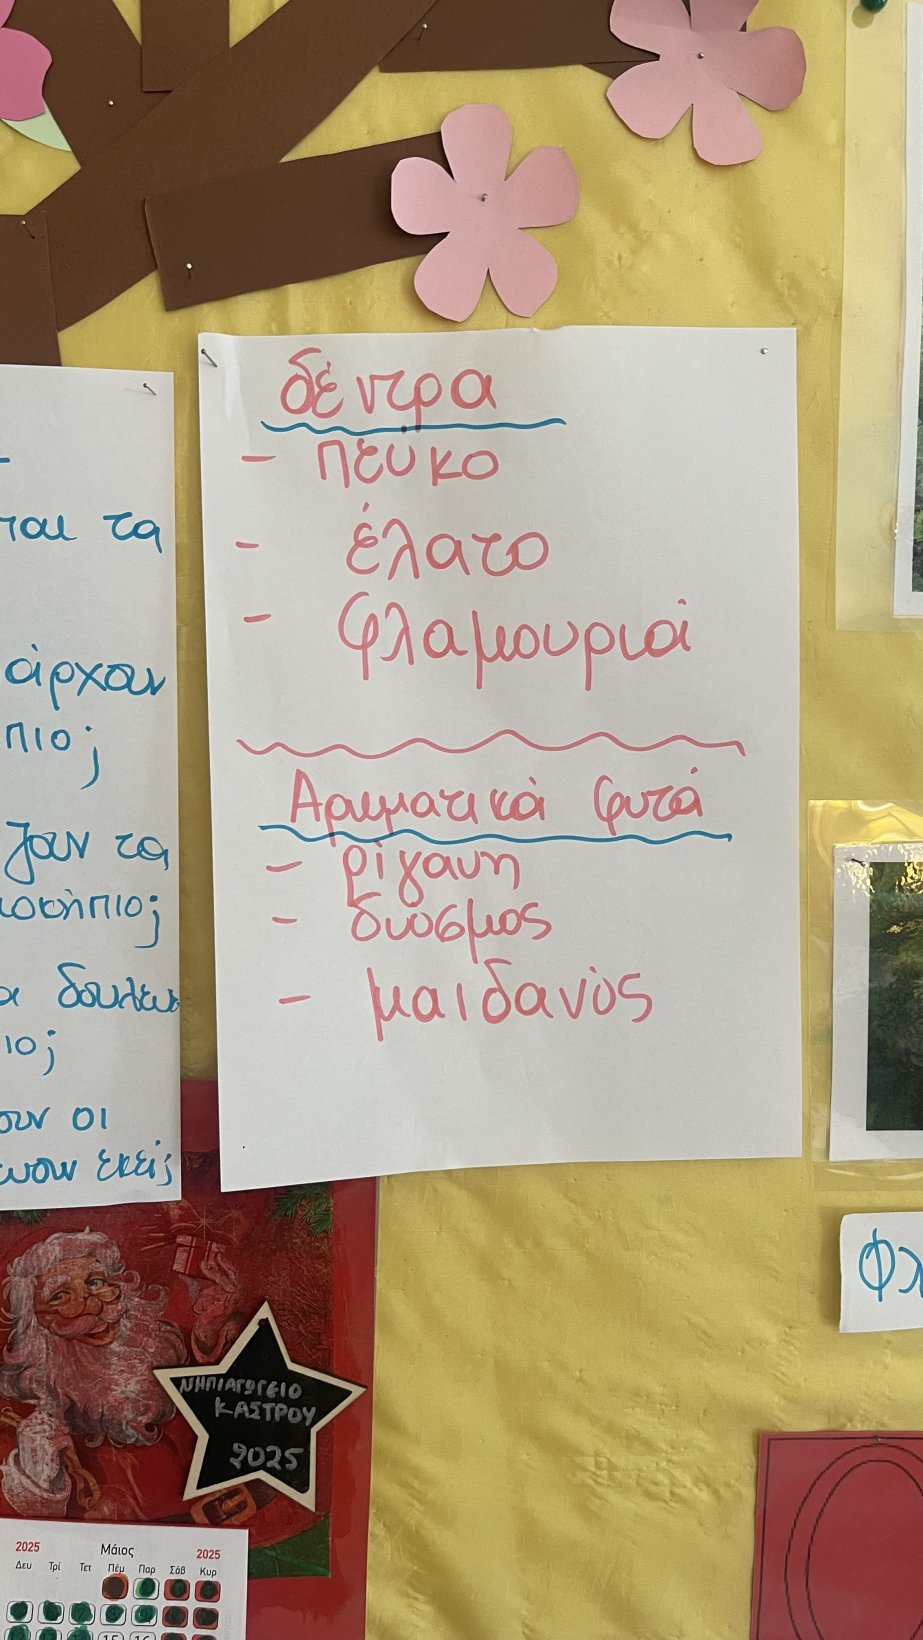 δέντρα
- πεύκο
- έλατο
- φλαμουριά
Αρωματικά φυτά
- ρίγανη
- δυόσμος
- μαιδανός
ται τα
άρχουν
πιο;
ζουν τα
οκήπιο;
α δουλευ
ιο;
ουν οι
εκείς
Φλ
ΝΗΠΙΑΓΩΓΕΙΟ
ΚΑΣΤΡΟΥ
2025
2025 Μάιος 2025
Δευ Τρί Τετ Πέμ Παρ Σάβ Κυρ
15 16